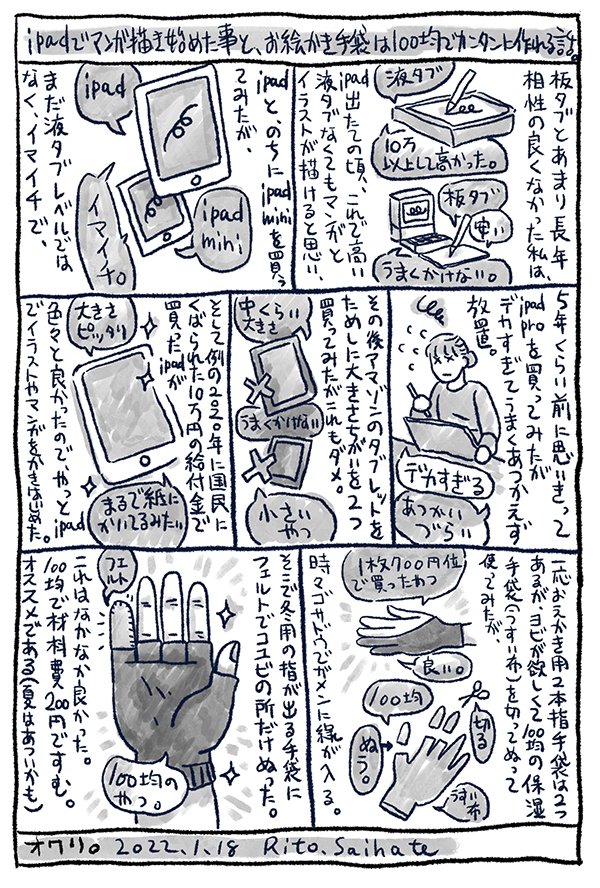 ipadでマンガ描き始めた事と、お絵かき手袋は100均でカンタンに作れる話。
板タブとあまり長年
相性の良くなかった私は、
液タブ
10万
以上して高かった。
板タブ
安い
うまくかけない。
ipad出たての頃、これで高い
液タブなくてもマンガと
イラストが描けると思い、
ipadと、のちにipad miniを買っ
てみたが、
ipad
ipad
mini
イマイチ。
まだ液タブレベルでは
なく、イマイチで、
5年くらい前に思いきって
ipad proを買ってみたが
デカすぎてうまくあつかえず
放置。
デカすぎる
あつかい
づらい
その後アマゾンのタブレットを
ためしに大きさちがいを2つ
買ってみたがこれもダメ。
中くらい
大きさ
うまくかけない
小さい
やつ
そして例の2020年に国民に
くばられた10万円の給付金で
買ったipadが
大きさ
ピッタリ
まるで紙に
かいてるみたい
色々と良かったのでやっとipad
でイラストやマンガをかきはじめた。
一応おえかき用2本指手袋は2つ
あるが、ヨビが欲しくて100均の保湿
手袋(うすい布)を切ってぬって
使ってみたが、
1枚700円位
で買ったやつ
良い。
100均
切る
ぬう。
うすい
布
時々ゴサドウでガメンに線が入る。
そこで冬用の指が出る手袋に
フェルトでコユビの所だけぬった。
フェ
ルト
100均の
やつ。
これはなかなか良かった。
100均で材料費200円ですむ。
オススメである(夏はあついかも)
オワリ。 2022.1.18 Rito.Saihate